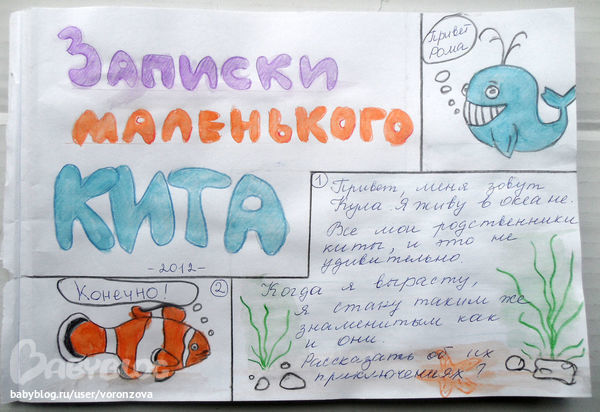 Записки
маленького
кита
-2012-
Привет
Рома
1
Привет, меня зовут
Кула. Я живу в океане.
Все мои родственники
киты, и это не
удивительно.
Когда я вырасту,
я стану таким же
знаменитым как
и они.
Рассказать об их
приключениях?
Конечно!
2
BABYBLOG
babyblog.ru/user/voronzova